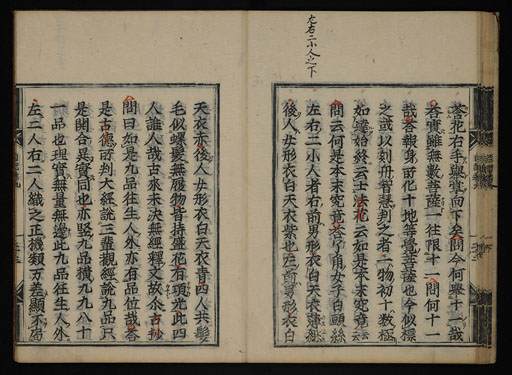 左右二小人之下
答犯右手擧掌向下至問今何擧十一哉
答實雖無數菩薩一往限十一問何十一
哉答報身所化十地等覺菩薩也今似標
之或以刻册智慧判之者一物初十數極
如終始終云士法花云如是本末究竟云
問云何是本末究竟答了角女子白頤絲
左右二小人者右前男形衣白天衣薄
後人女形衣白天衣紫也左前男形衣白
天衣赤後人女形衣白天衣青四人共髮
毛似螺髮無履物皆持盛花有項光此四
人誰人哉古來未決無經釋文故余古抄
問曰如是九品往生人外亦有品位哉答
是古德所判大經說三輩觀經說九品只
是開合異實同也亦竪九品橫九九八十
一品也理實無量無邊此九品往生人外
左二人右二人織之正機類万差顯不